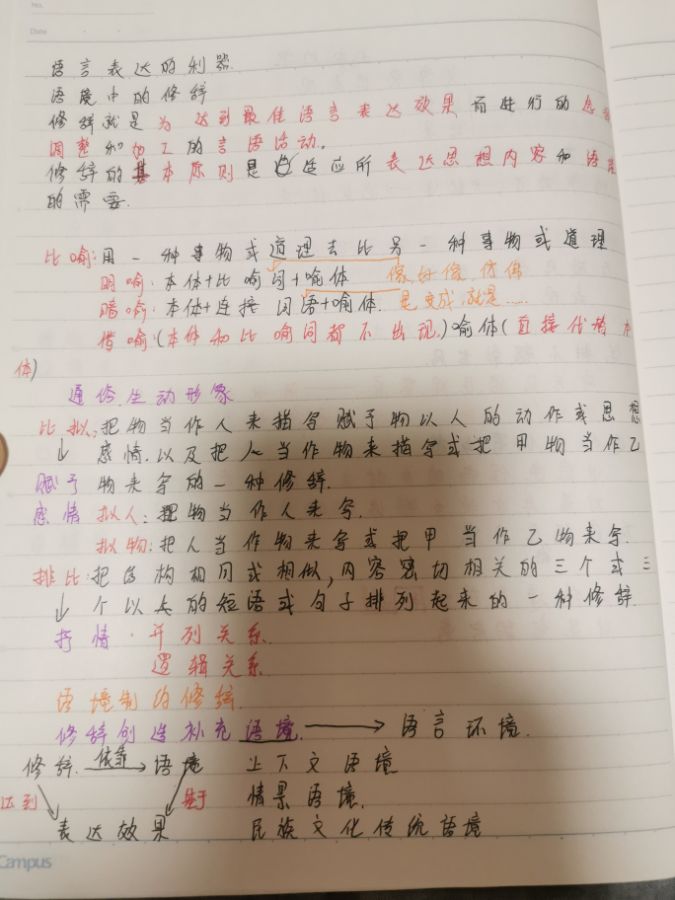 No.
Date
语言表达的利器
语境中的修辞
修辞就是为达到最佳语言表达效果而进行的
调整和加工的言语活动。
修辞的基本原则是适应所表达思想内容和语境
的需要.
比喻:用一种事物或道理去比另一种事物或道理
明喻:本体+比喻词+喻体 像,好像,仿佛
暗喻:本体+连接词语+喻体. 是,变成,就是……
借喻:(本体和比喻词都不出现.)喻体(直接代替本
体)
通俗生动形象
比拟:把物当作人来描写赋予物以人的动作或思想
↓ 感情.以及把人当作物来描写或把甲物当作乙
赋予 物来写的一种修辞.
感情 拟人:把物当作人来写.
拟物:把人当作物来写或把甲当作乙物来写.
排比:把结构相同或相似,内容密切相关的三个或三
↓ 个以上的短语或句子排列起来的一种修辞.
抒情·并列关系.
逻辑关系.
语境制约修辞.
修辞创造补充语境.→语言环境.
修辞.依靠→语境 上下文语境
达到 情景语境.
表达效果 民族文化传统语境
Campus